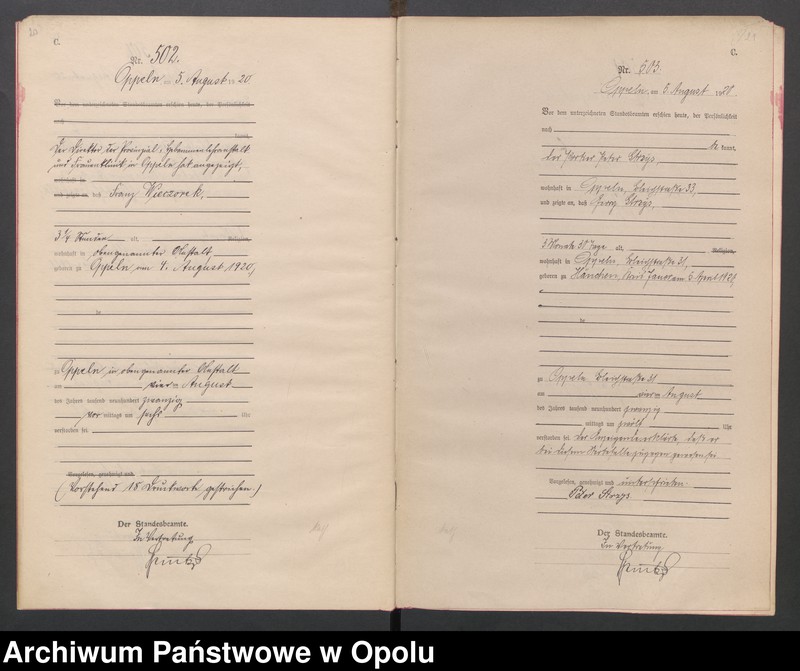 C.
Nr. 502.
Oppeln am 5. August 1920
Vor dem unterzeichneten Standesbeamten erschien heute, der Persönlichkeit
nach
kannt,
Der Direktor der Provinzial-Hebammenlehranstalt
und Frauenklinik in Oppeln hat angezeigt,
wohnhaft in
und zeigte an, daß Franz Wieczorek,
3 1/4 Stunden alt, Religion,
wohnhaft in obengenannter Anstalt,
geboren zu Oppeln am 4. August 1920,
de
zu Oppeln in obengenannter Anstalt
am vier August
des Jahres tausend neunhundert zwanzig
vor mittags um sechs Uhr
verstorben sei.
Vorgelesen, genehmigt und
(Vorstehend 18 Druckworte gestrichen.)
Der Standesbeamte.
In Vertretung
C.
Nr. 503.
Oppeln, am 5. August 1920
Vor dem unterzeichneten Standesbeamten erschien heute, der Persönlichkeit
nach
be kannt,
der Peter
wohnhaft in Oppeln, 33,
und zeigte an, daß Georg
3 Monate alt, Religion,
wohnhaft in Oppeln, 31,
geboren zu
de
zu Oppeln 31
am vier August
des Jahres tausend neunhundert zwanzig
mittags um zwölf Uhr
verstorben sei. Der Anzeigende erklärte, daß er
bei diesem Sterbefalle zugegen gewesen sei.
Vorgelesen, genehmigt und unterschrieben.
Peter
Der Standesbeamte.
In Vertretung
Archiwum Państwowe w Opolu